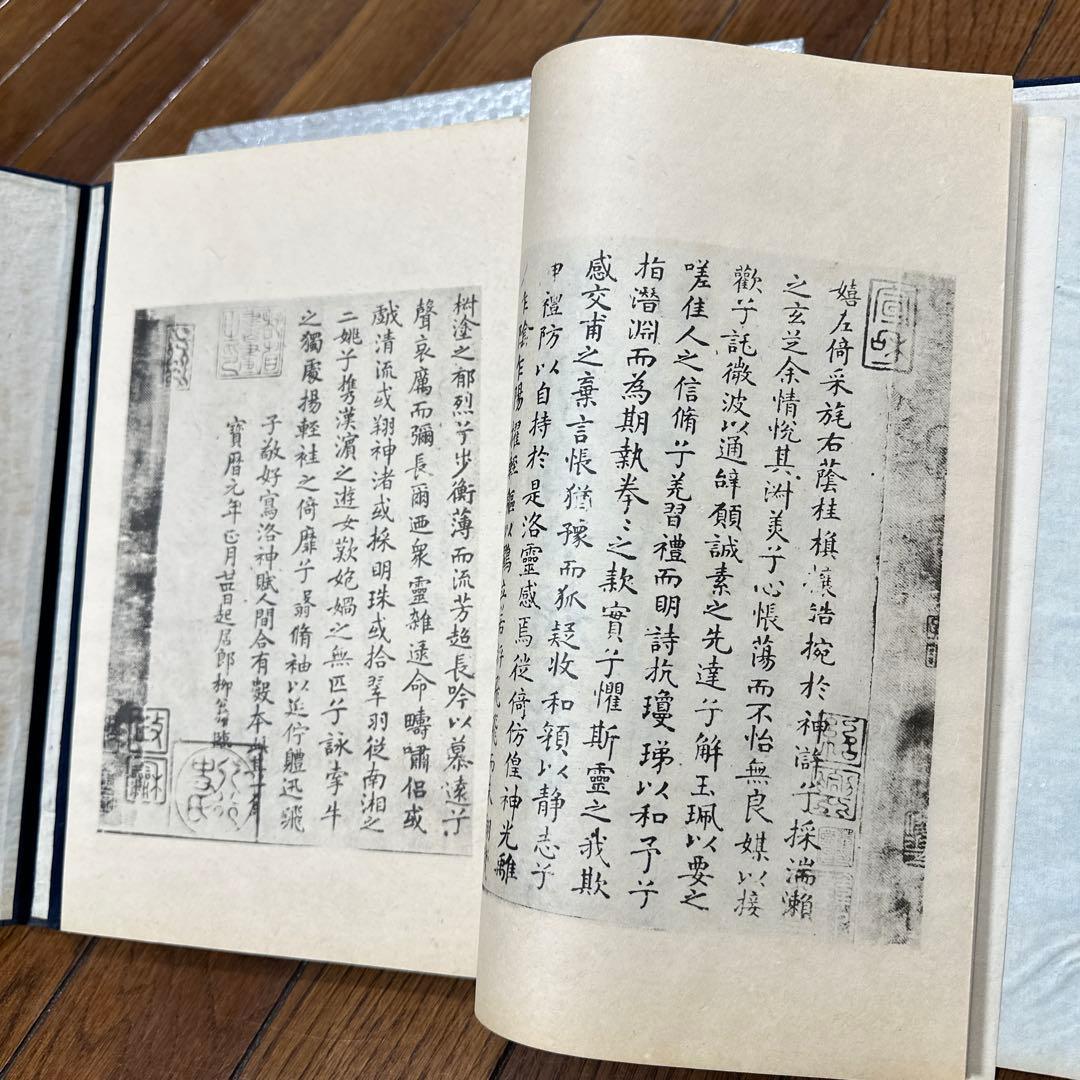 嬉左倚采旄右蔭桂旗攘皓捥於神滸兮採湍瀨
之玄芝余情悅其淑美兮心悵蕩而不怡無良媒以接
歡兮託微波以通辭願誠素之先達兮解玉珮以要之
嗟佳人之信脩兮羌習禮而明詩抗瓊珶以和予兮
指潛淵而為期執拳〻之款實兮懼斯靈之我欺
感交甫之棄言悵猶豫而狐疑收和顏以静志兮
申禮防以自持於是洛靈感焉徙倚仿偟神光離
乍陰乍陽擢輕軀以鶴立若將飛而未翔
椒塗之郁烈兮步衡薄而流芳超長吟以慕遠兮
聲哀厲而彌長爾迺衆靈雜遝命疇嘯侣或
戲清流或翔神渚或採明珠或拾翠羽從南湘之
二姚兮携漢濱之遊女歎匏媧之無匹兮詠牽牛
之獨處揚輕袿之倚靡兮翳脩袖以延佇體迅飛
子敬好寫洛神賦人間合有數本此其一焉
寶曆元年正月日起居郎柳公權題